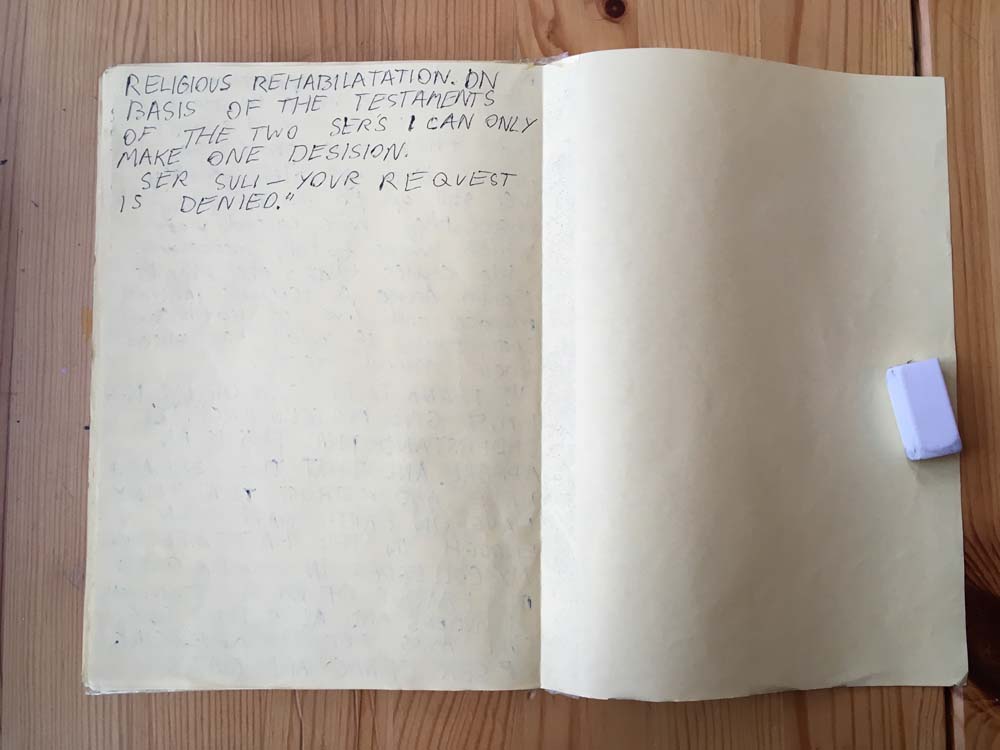 RELIGIOUS REHABILATATION. ON
BASIS OF THE TESTAMENTS
OF THE TWO SERS I CAN ONLY
MAKE ONE DESISION.
SER SULI — YOUR REQUEST
IS DENIED."